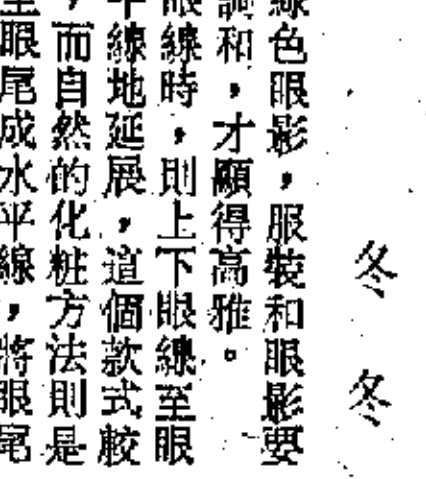 冬冬
綠色眼影,服裝和眼影要
調和,才顯得高雅。
眼線時,則上下眼線至眼
平線地延展,這個款式較
,而自然的化粧方法則是
至眼尾成水平線,將眼尾